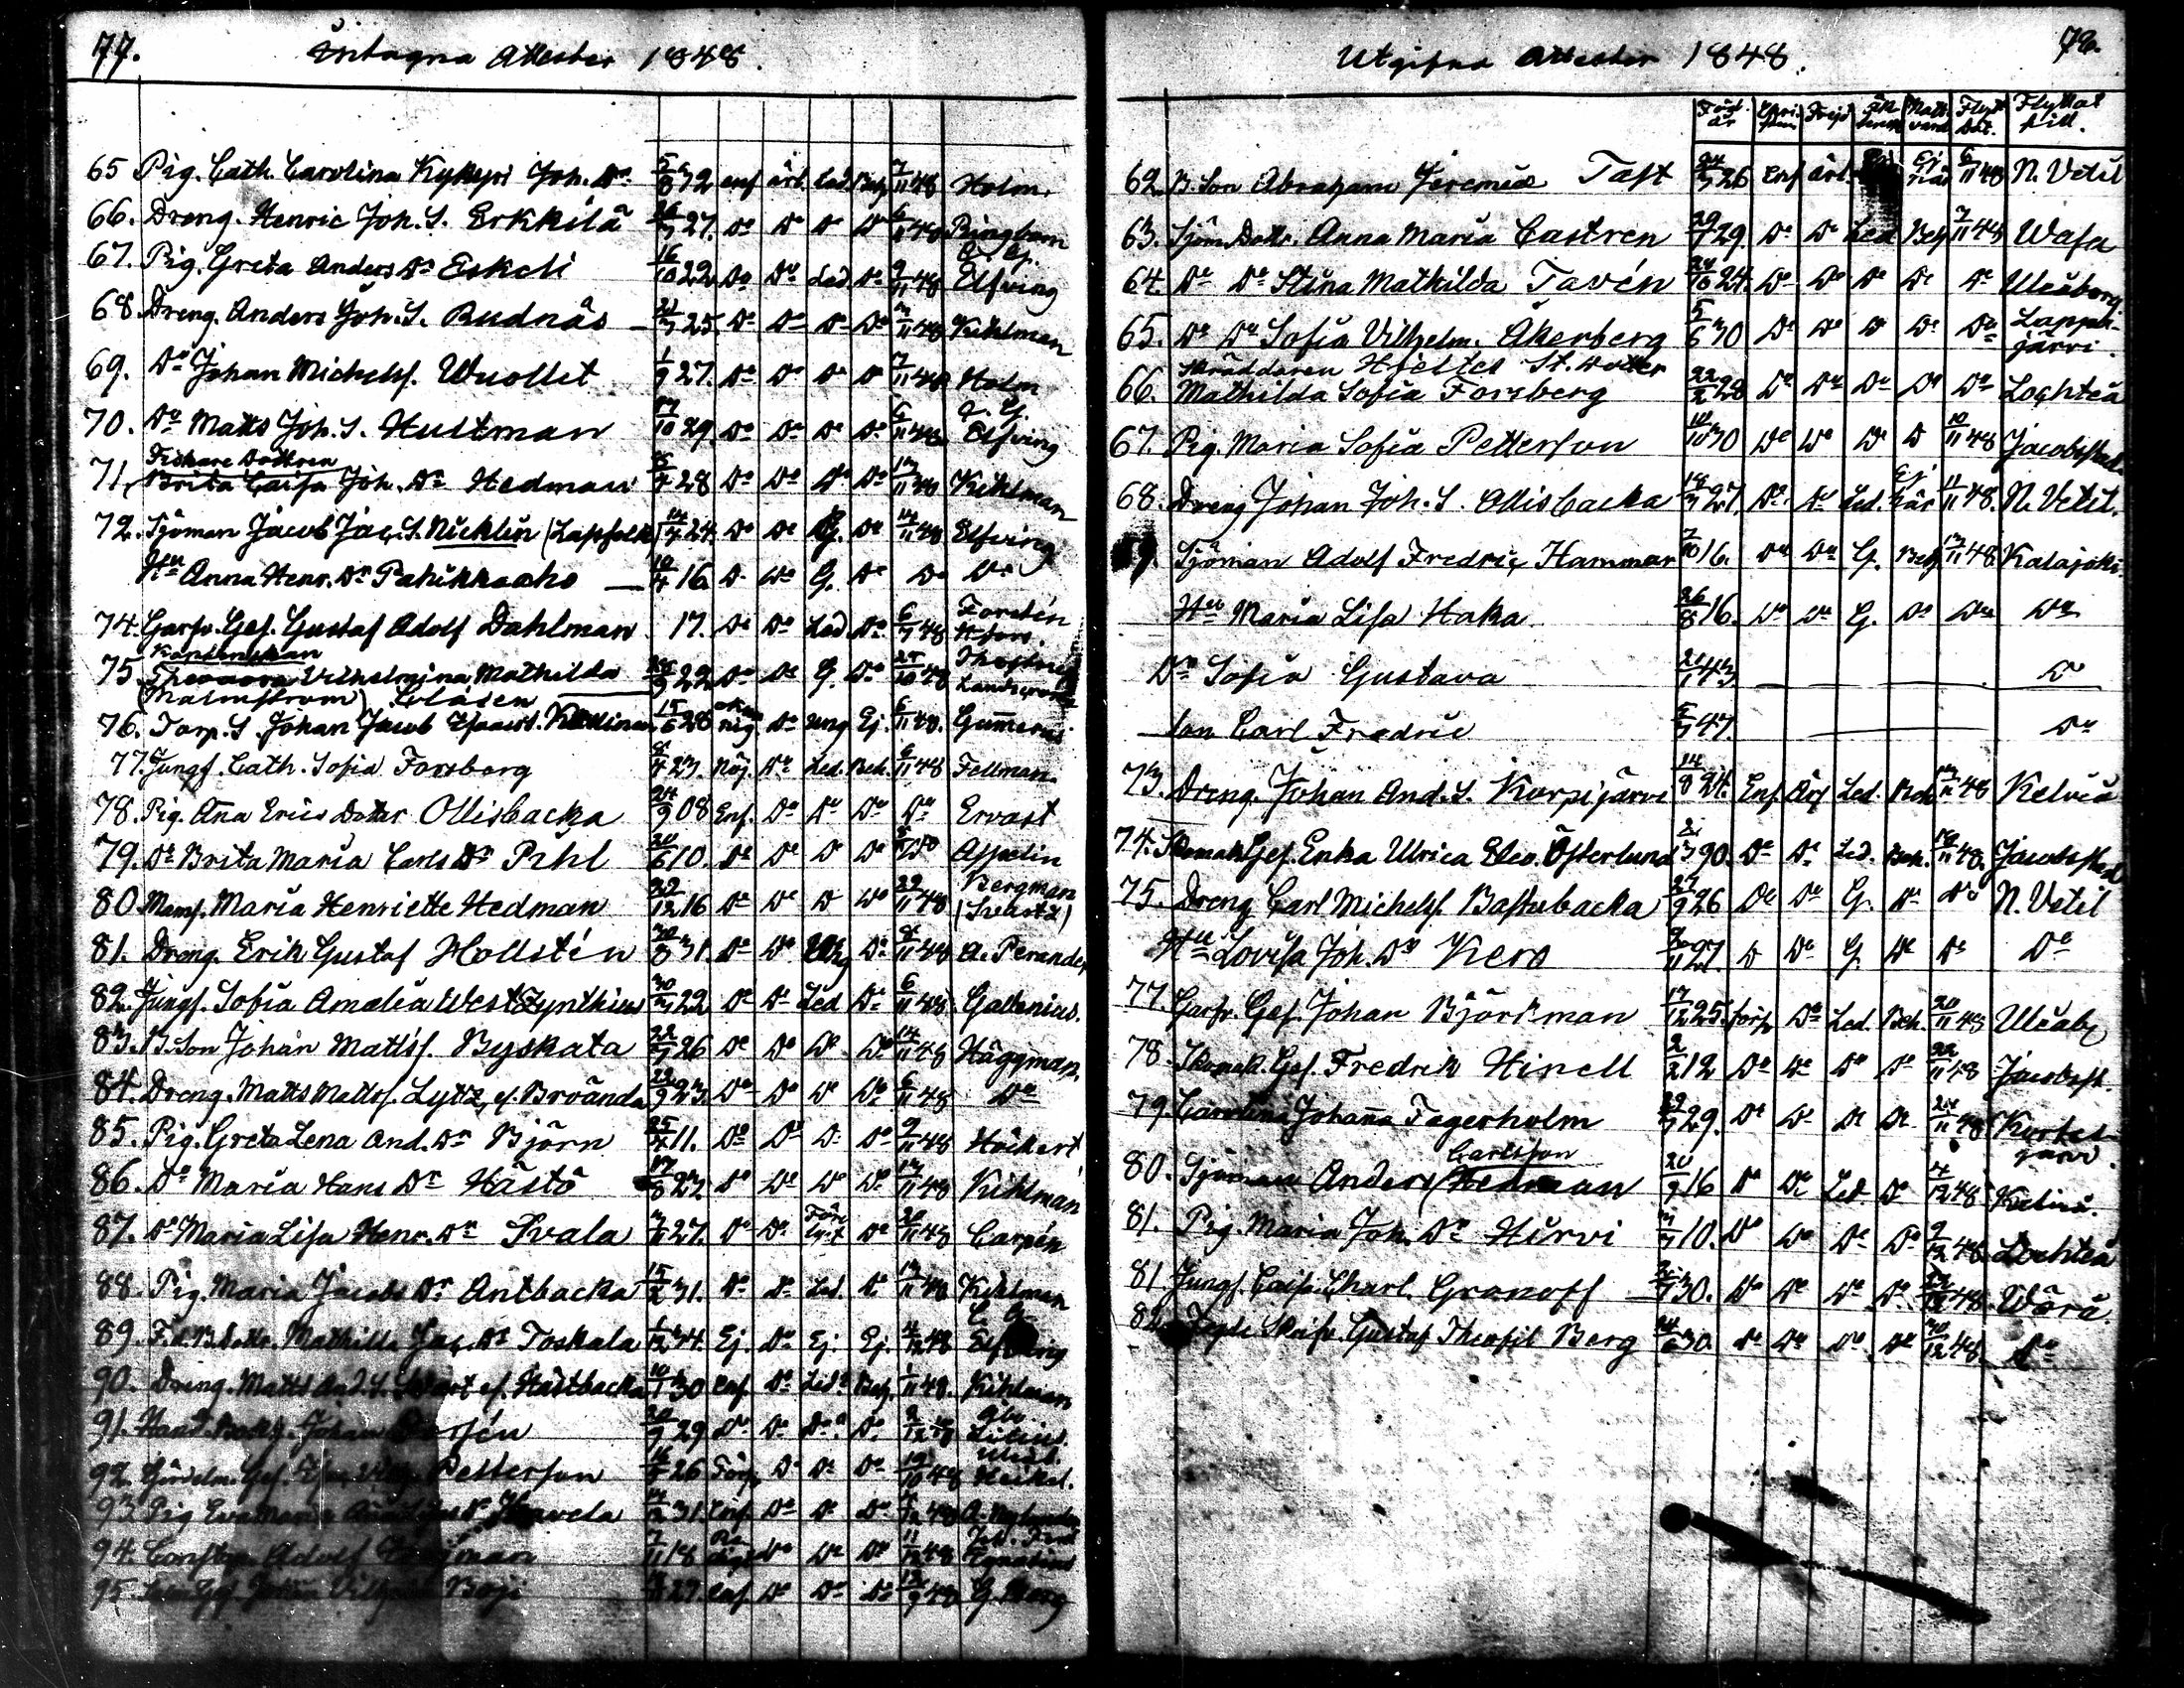 77. Intagna Attester 1848.
65 Pig. Cath. Carolina Kykyri Joh. Dr 5/8 32 enf ärl. Led Beh 7/11 48 Holm.
66. Dreng. Henric Joh. S. Erkkilä 27. Do D D D 6/11 48 Ringbom
67. Pig. Greta Anders Dr Eskeli 16/10 22 Do Do Led Do 9/11 48 C. G. Elfving
68. Dreng. Anders Joh. S. Rudnäs 25. Do Do Do Do 11 48 Kihlman
69. Do Johan Michelss. Wuollet 1/9 27. Do Do Do Do 7/11 48 Holm
70. Do Matts Joh. S. Hustman 10 29 Do Do Do Do 6/11 48 C. G. Elfving
71. Fiskare Dottren Brita Caisa Joh. Dr Hedman 28 Do Do Do Do 13/11 48 Kihlman
72. Sjöman Jacob Jac. S. Nicklin (Lapfolk) 14 24 Do Do G. Do 14/11 48 Elfving
Hu Anna Henr. Dr Pahikkaaho 10/4 16 D. Do G. Do Do Do
74. Garfv. Gef. Gustaf Adolf Dahlman 17. Do Do Led Do 6/7 48 Forstén
75 Vilhelmina Mathilda (Malmstrom) 22 Do Do G. Do 10 48
76. Torp. S. Johan Jacob 15/6 28 Do ung Ej. 6/11 48. Gumerus
77. Jungf. Cath. Sofia Forsberg 8/4 23. Nöj. Do Led. Beh. 6/11 48 Fellman
78. Pig. Ana Erics Dotter Ollisbacka 24/9 08 Enf. Do Do Do Do Ervast
79. Do Brita Maria Carls Dr Pihl 20/6 10. Do Do Do Do Appelin
80. Mams. Maria Henriette Hedman 22/12 16 Do Do D Do 22/11 48 Bergman (Svartz)
81. Dreng. Erik Gustaf Hollstén 30/8 31. Do Do Do 8/11 48 A. Perander
82. Jungf. Sofia Amalia Westzynthius 30/3 22 Do Do Led Do 6/11 48 Gallenius.
83. B. Son Johan Mattss. Byskata 22 26 Do Do Do Do 14/11 48 Häggman.
84. Dreng. Matts Mattss. Lytz, ef. Brvända 22/9 23. Do Do Do Do 6/11 48 Do
85. Pig. Greta Lena And. Dr Björn 25/4 11. Do Do D. Do 9/11 48 Höckert
86. Do Maria Hans Dr Hästö 17/8 23. Do Do Do Do 13/11 48 Kihlman
87. Do Maria Lisa Henr. Dr Svala 27. Do Do Do 20/11 48 Carpén
88. Pig. Maria Jacobs Dr Antbacka 15/2 31. Do Do Led. Do 13/11 48 Kihlman
89. F. d. B. Dottr. Mathilda Jac. Dr Toskala 1/12 44. Ej. Do Ej. Ej. 4/12 48 C. G. Elfving
90. Dreng. Matts And. S. ef. Hästbacka 10/1 30 Enf. Do Led. Beh. 1/11 48. Kihlman
91. Hand. Bokh. Johan 20/9 29 Do Do Do Do 9/12 48
92. Gef. Petterson 16 26 Do Do Do 19/10 48
93. Pig Eva Maria 31. Enf. Do Do Do 12 48
94. Adolf 7/11 18 Do Do Do 11/12 48
95. 27. Enf. Do Do Do 48 G. Berg
Utgifna Attester 1848. 78.
Föd. år Chri-stend. Frejd Äk-tensk Natt-vard Flytt dat. Flyttat till.
62. B. Son Abraham Jeremiæ Tast 24/3 26 Enf ärl. Ej när 6/11 48 N. Vetil
63. Sjöm. Dottr. Anna Maria Castren 29 Do Do Led. Beh 7/11 48 Wasa
64. Do Do Stina Mathilda Tavén 24/10 24. Do Do Do Do Do Uleåborg
65. Do Do Sofia Vilhelm. Åkerberg 5/6 30 Do Do D Do Do Lappa-järvi.
Skräddaren Hjeltes St. dotter
66. Mathilda Sofia Forsberg 22/2 28 Do Do Do Do Do Lochteå
67. Pig. Maria Sofia Petterson 10/10 30 Do Do Do D 10/11 48 Jacobstad
68. Dreng Johan Joh. S. Ollisbacka 18/3 27. Do. Do Led. Ej när 11/11 48. N. Vetil.
Sjöman Adolf Fredric Hammar 7/10 16. Do Do G. Beh 13/11 48 Kalajoki.
Hu Maria Lisa Haka 26/8 16. Do Do G. Do Do Do
Dr Sofia Gustava 21/1 43. D
Son Carl Fredric 47. Do
73. Dreng. Johan And. S. Korpijärvi 14/8 24. Enf. Ärl Led. Beh 13/11 48 Kelviå
74. Skomak Gef. Enka Ulrica Eleo. Österlund 2/3 90. Do Do Led. Beh. 11 48. Jacobstad
75. Dreng Carl Michelss. Bastubacka 27/9 26 Do Do G. Do Do N. Vetil
Hu Lovisa Joh. Dr Kero 11 27. D Do G. Do Do Do
77. Garfv. Gef. Johan Björkman 17/12 25. Do Led. Beh. 20/11 48 Uleåb
78. Skomak. Gef. Fredrik Hinell 2/2 12 Do Do Do Do 22/11 48 Jacobst.
79. Carolina Johana Fagerholm 22 29. Do Do Do Do 24/11 48 Kortesjärvi.
80. Sjöman Anders Carlsson (Hedman 20/9 16 Do Do Led. Do 4/12 48 Kelviå.
81. Pig. Maria Joh. Dr Hirvi 10. Do Do Do Do 9/12 48. Lochteå
81. Jungf. Caisa Charl. Granoff 30. Do Do Do Do 12 48. Wörå.
82. Gustaf Theofil Berg 30. Do Do Do Do 30/12 48. Do